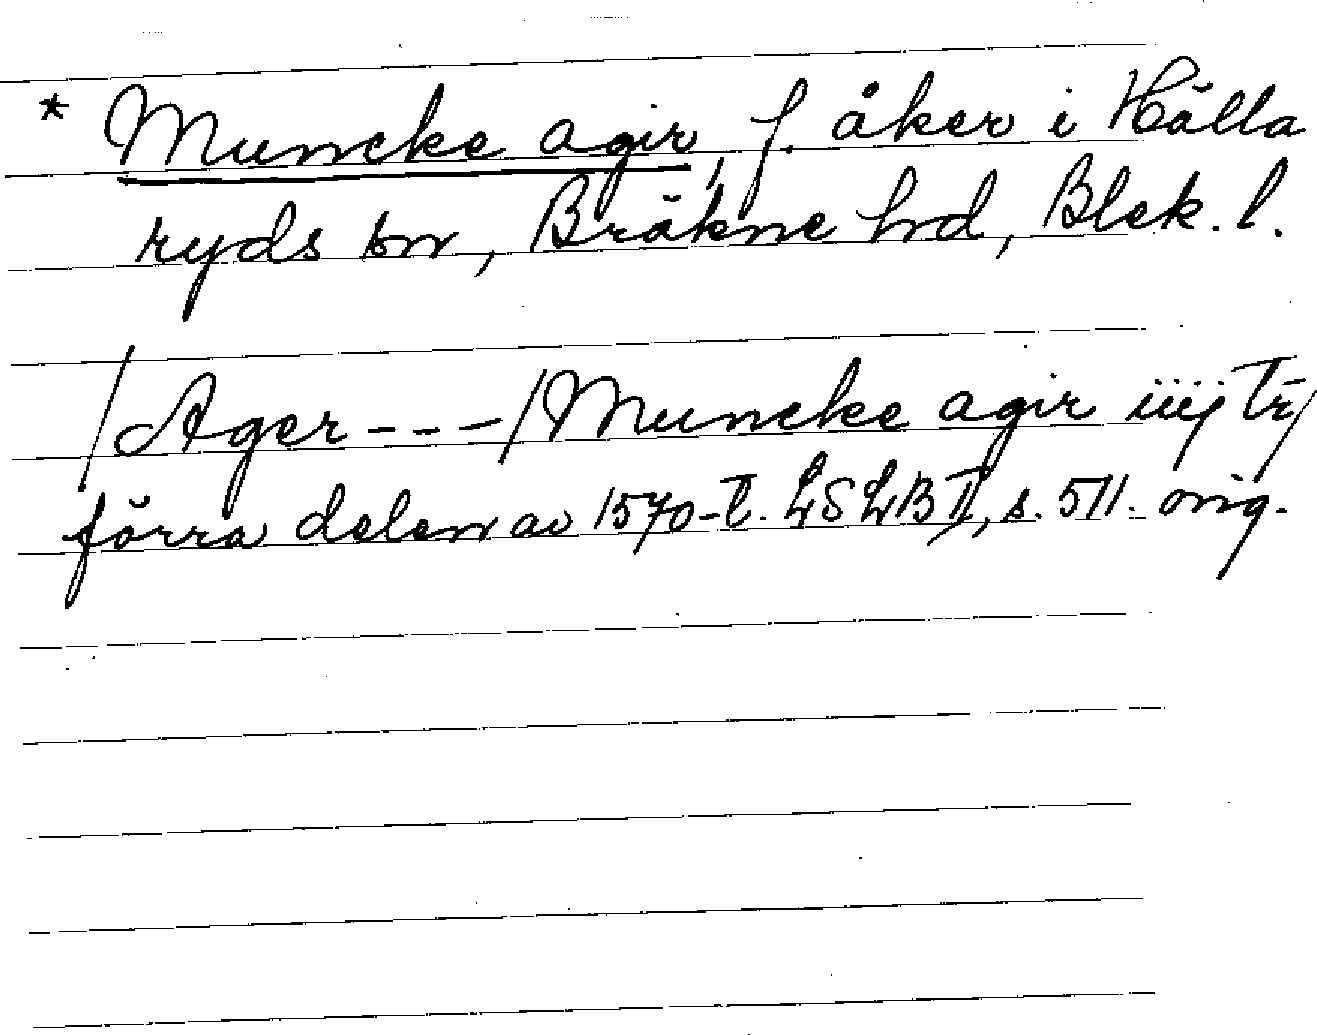 * Muncke agir, f. åker i Hälla
ryds sn, Bräkne hd, Blek. l.
/Ager---/Muncke agir iiij tr/
förra delen av 1570-t. LSLB II, s. 511. orig.